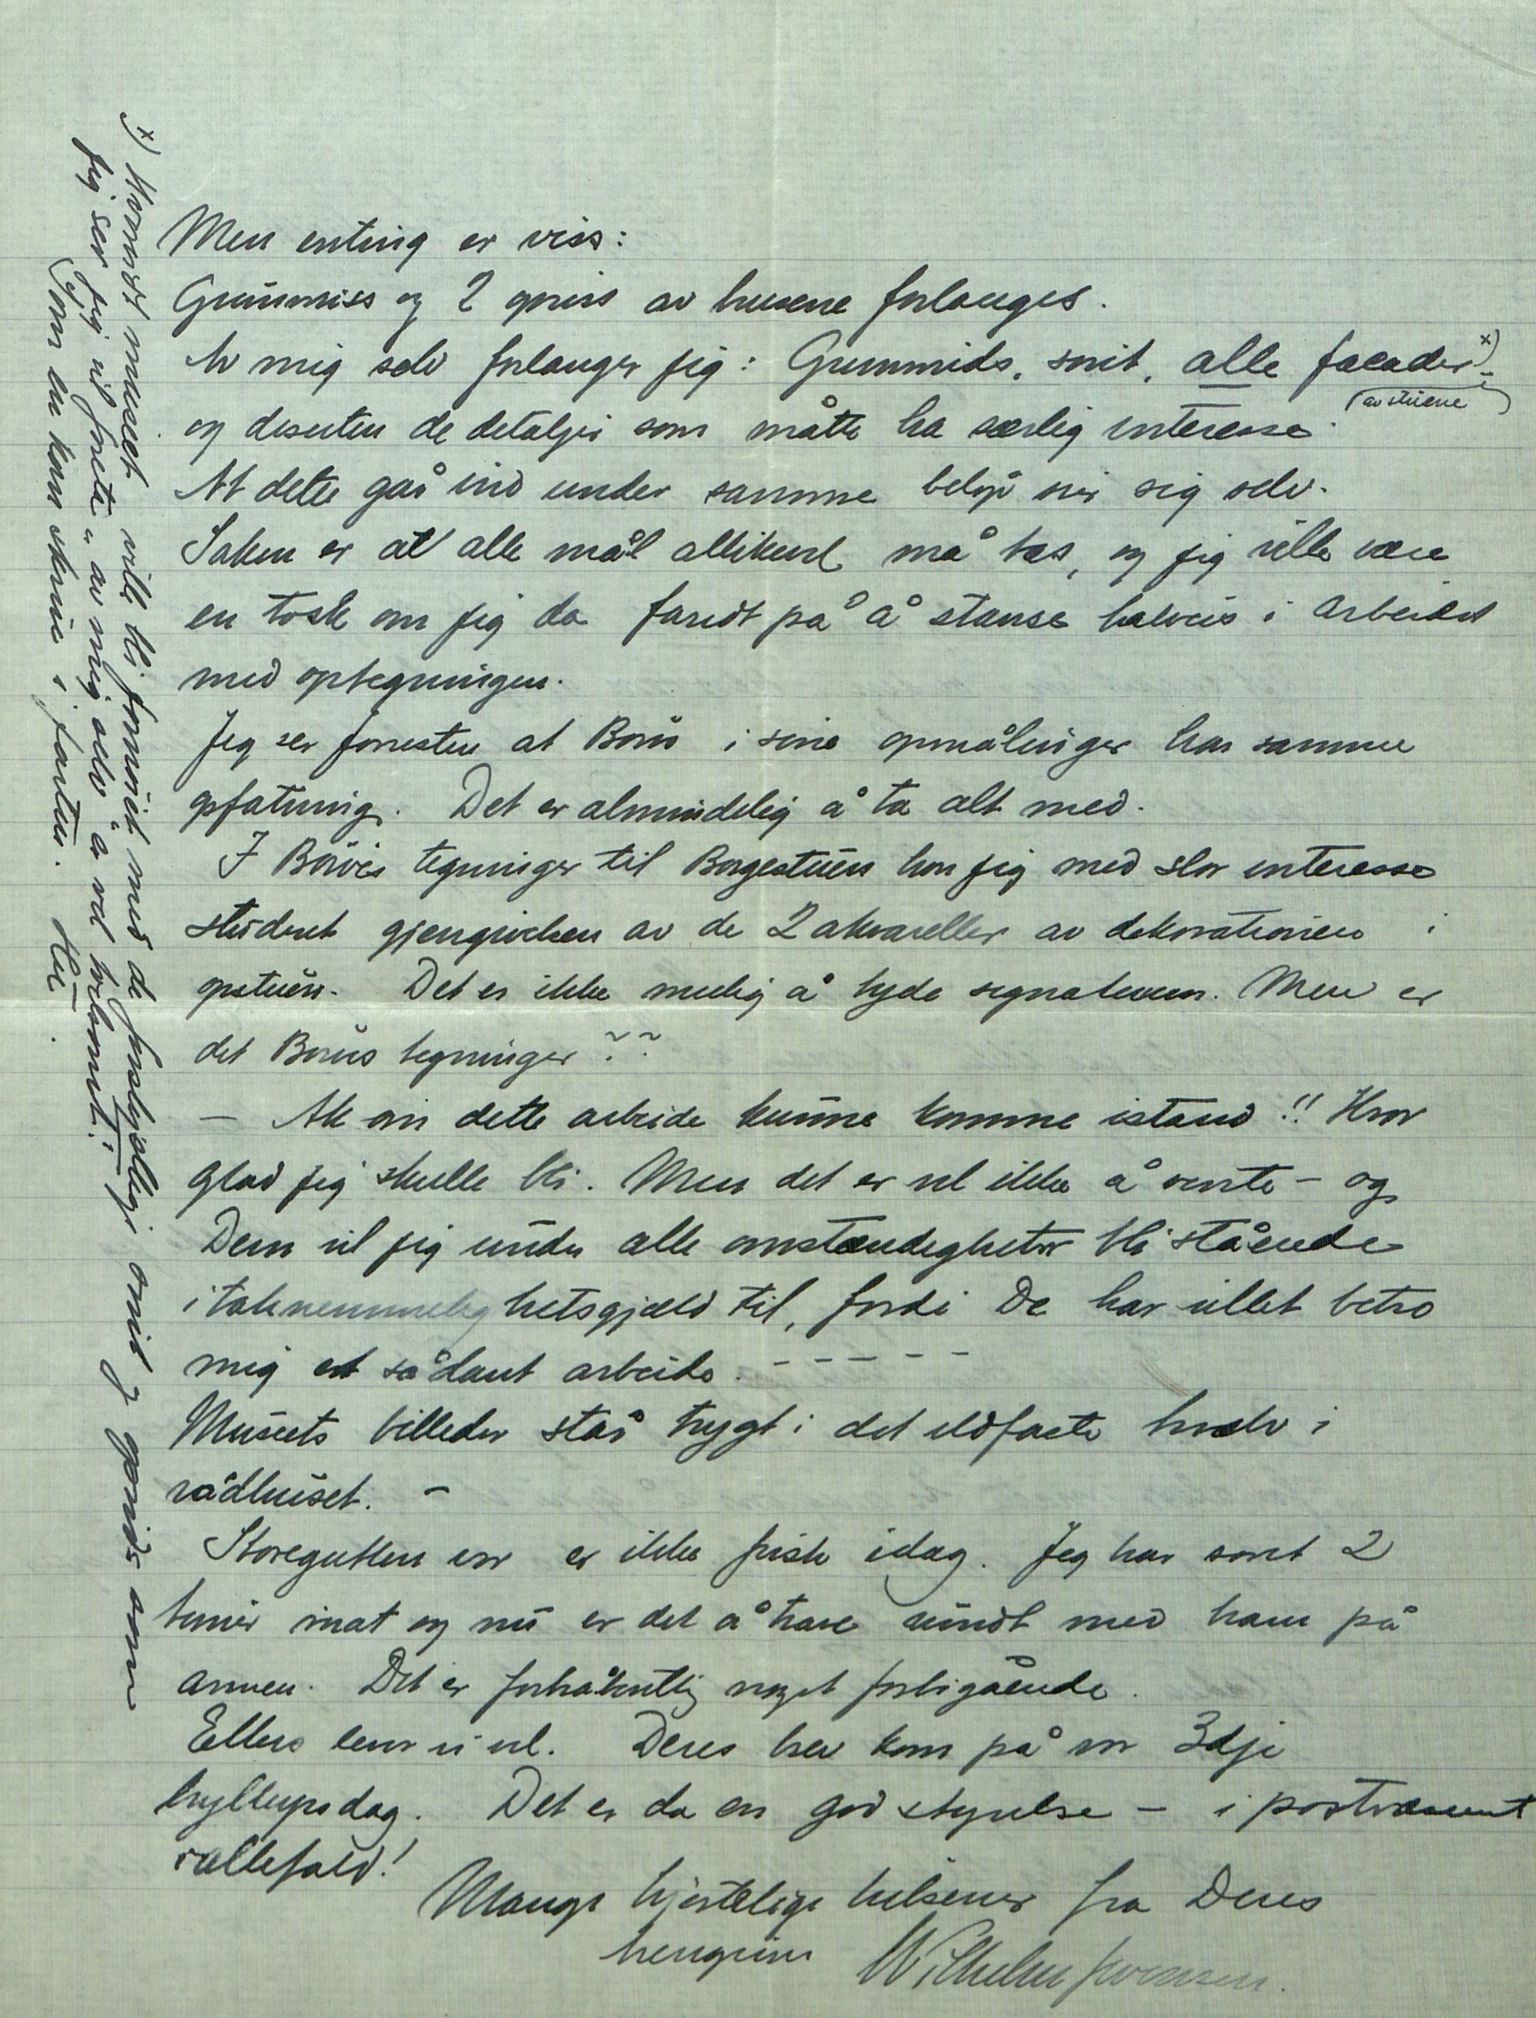 Men enting er viss:
Grunnriss og 2 opriss av husene forlanges.
Av mig selv forlanger jeg: Grunnrids, snit, alle facader x)
(av stuene)
og desuten de detaljer som måtte ha særlig interesse.
At dette går ind under samme beløp sier sig selv.
Saken er at alle mål allikevel må tas, og jeg ville være
en tosk om jeg da fandt på å stanse halveis i arbeidet
med optegningen.
Jeg ser forresten at Boris i sine opmålinger har samme
opfatning. Det er almindelig å ta alt med.
I Bøves tegninger til Borgestuens har jeg med stor interesse
studeret gjengivelsen av de 2 akvareller av dekorationen i
opstuen. Det er ikke mulig å tyde signaturen. Men er
det tegninger??
— Ak om dette arbeide kunne komme istand!! Hvor
glad jeg skulle bli. Men det er vel ikke å vente – og
Dem vil jeg under alle omstændigheter bli stående
i taknemmelighetsgjæld til, fordi De har villet betro
mig et sådant arbeide. – – – – –
Museets billeder står trygt i det ildfaste hvælv i
rådhuset. –
Storegutten vor er ikke frisk idag. Jeg har sovet 2
timer inat og nu er det å trave rundt med ham på
armen. Det er forhåbentlig noget forbigående.
Ellers lever vi vel. Deres brev kom på vor 3dje
bryllupsdag. Det er da en god styrelse – i postvæsenet
iallefald!
Mange hjertelige hilsener fra Deres
hengivne Wilhelm Swensen.
x) museet ville bli fornøiet med de forskjellige snit og oprids som
jeg ser jeg vil forete" av mig selv" å vel bekomme!"
(som en kan skrive i farten.